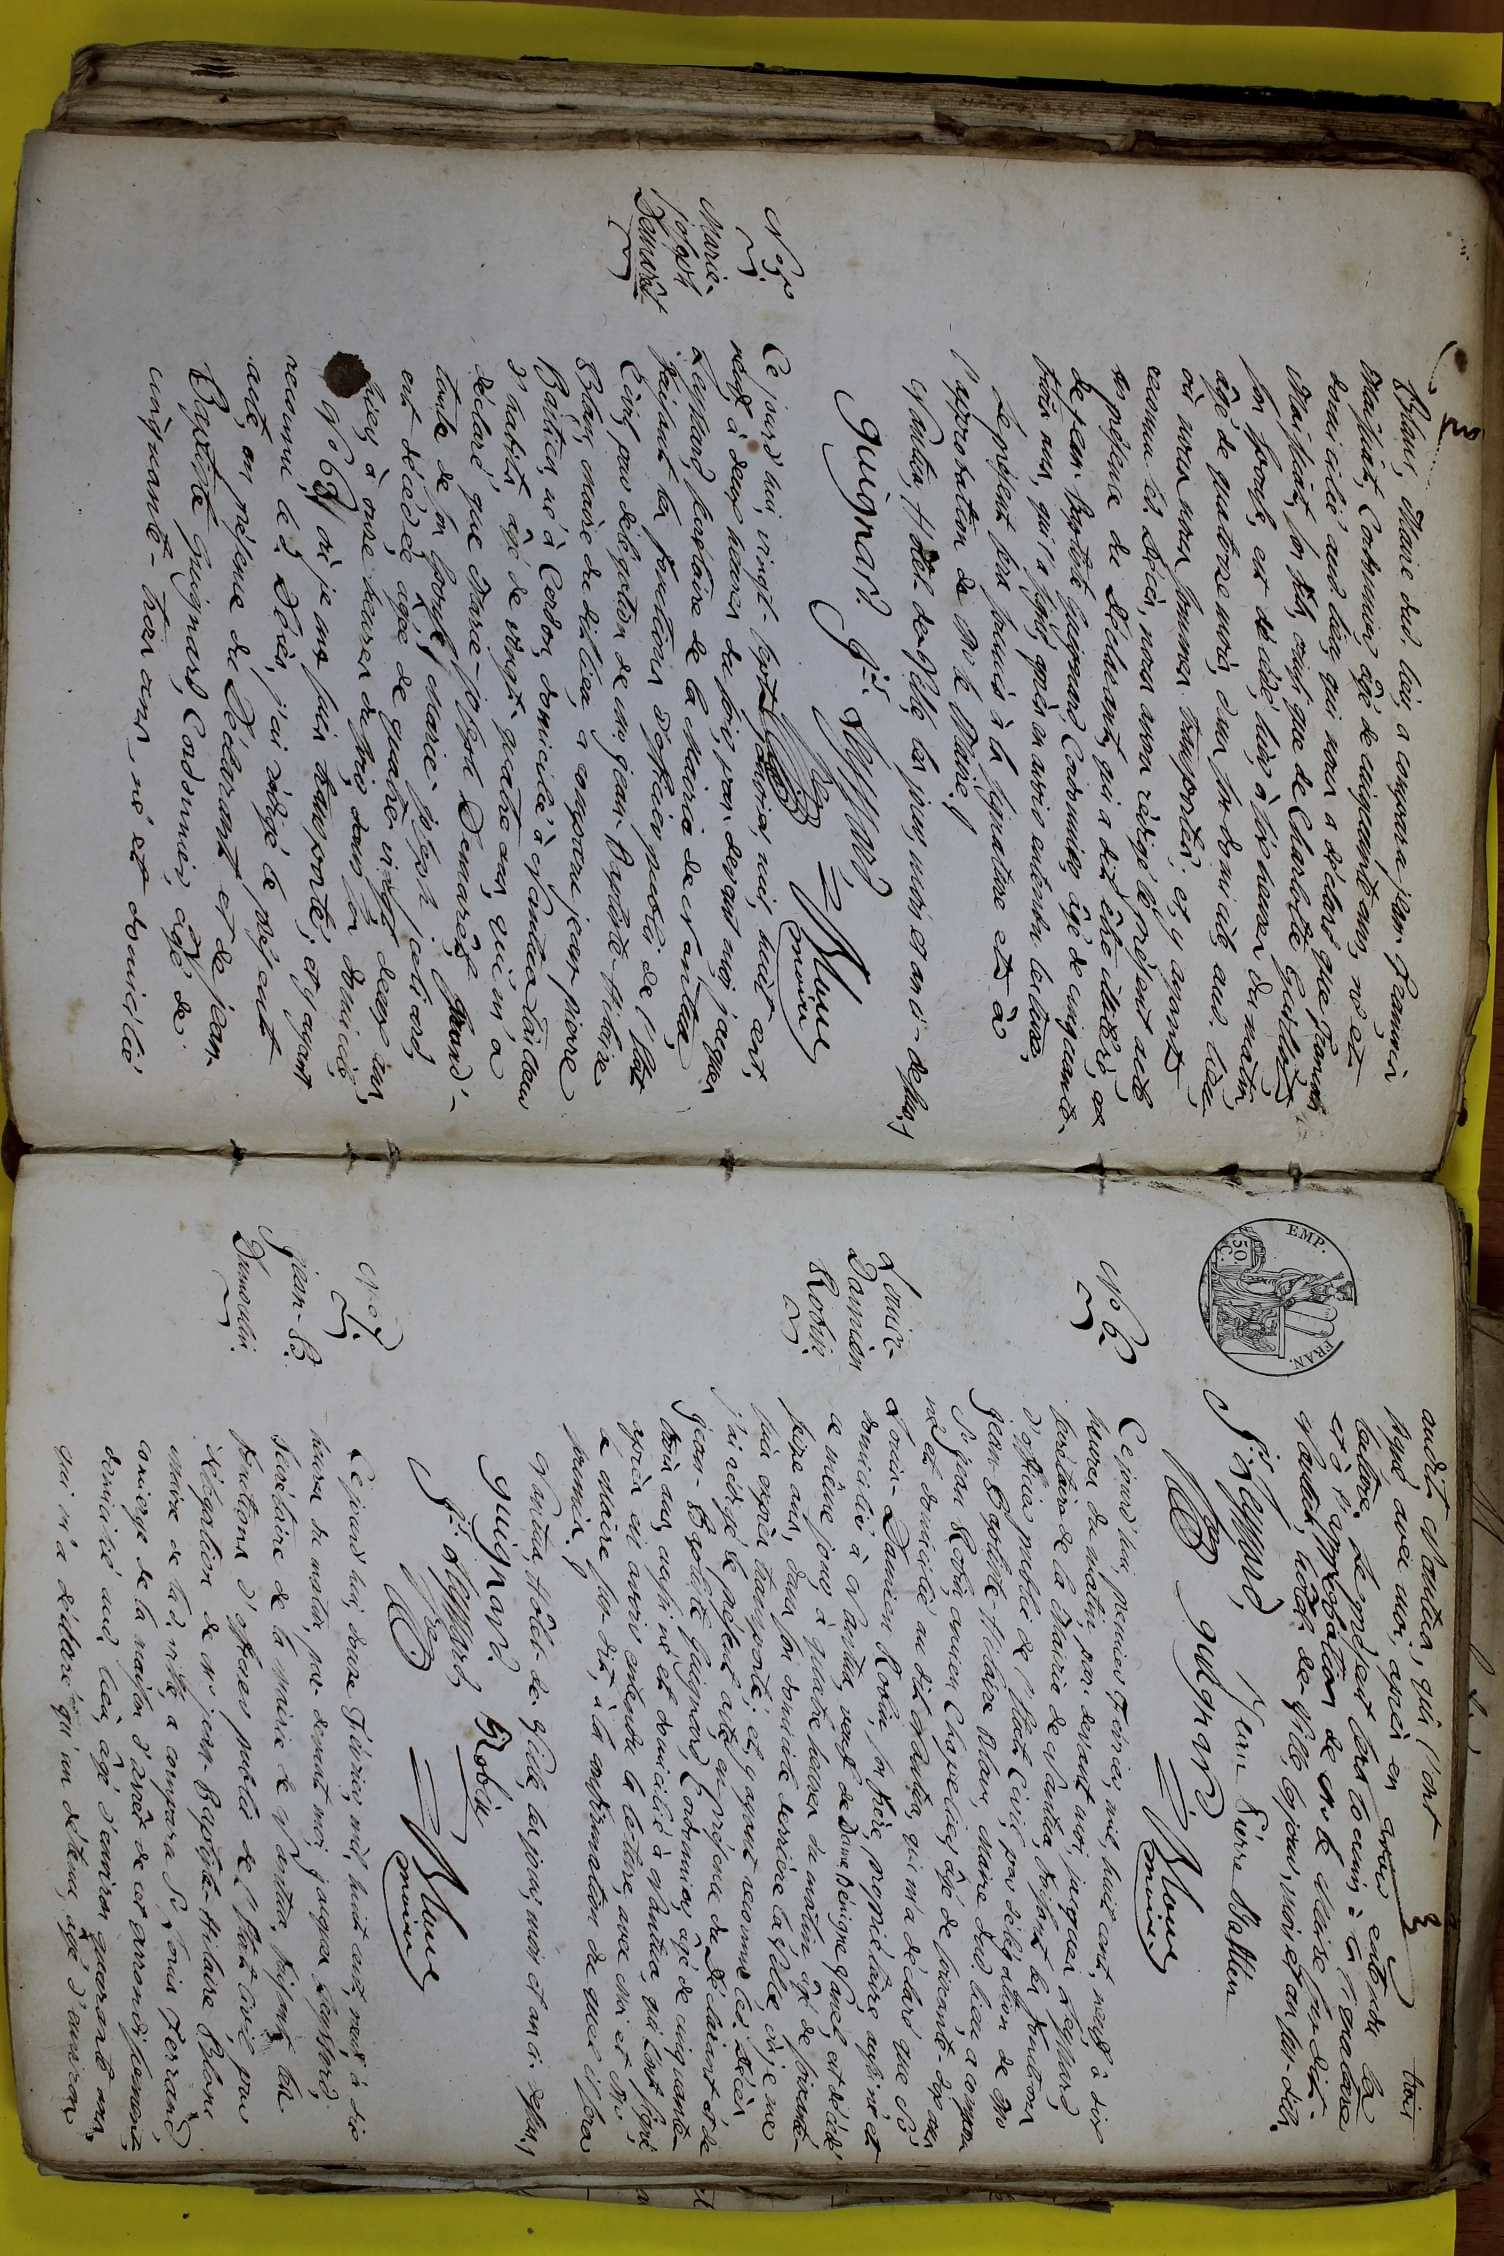 Blanc, Maire dud. lieu, a comparu jean-françois
Maissiat, Cordonnier, âgé de cinquante ans, né et
domicilié aud. lieu, qui nous a déclaré que
Maissiat, son fils, ainsi que de Charlotte
son épouse, est décédé, hier à six heures du matin,
âgé de quatorze mois, dans son domicile, aud. lieu
où nous nous sommes transportés; et, y ayant
reconnu led. Décès, nous avons rédigé le présent acte
en présence du Déclarant, qui a dit être illitéré, et
de jean-baptiste guignard, Cordonnier, âgé de cinquante-
trois ans, qui l'a signé, après en avoir entendu lecture.
Le présent sera soumis à la signature et à
l'approbation de Mr. le Maire./
Nantua, Hôtel-de-Ville, les jour, mois et an ci-dessus./
guignard. Js. Leyssard
Blanc
maire
N.º 5
Marie-
joseph
Demarêt
Ce jourd'hui, vingt-sept janvier, mil, huit cent,
neuf, à deux heures du soir, par-devant moi, jacques
Leyssard, secrétaire de la Mairie de Nantua,
faisant les fonctions d'officier public de l'état
Civil, par délégation de Mr. jean-Baptiste-hilaire
Blanc, maire du dit lieu, a comparu jean-pierre
Balthin, né à Cerdon, domicilié à Nantua, tailleur
d'habits, âgé de vingt-quatre ans, qui m'a
déclaré que Marie-joseph Demarêt, grand'-
tante de son épouse, Marie-joseph
est décédée âgée de quatre-vingt deux ans,
hier, à onze heures du soir, dans son domicile,
N.º 63, où je me suis transporté; et, y ayant
reconnu led. Décès, j'ai rédigé le présent
acte, en présence du Déclarant et de jean-
Baptiste guignard, Cordonnier, âgé de
cinquante-trois ans, né et domicilié
trois
audit Nantua, qui l'ont
signé avec moi, après en avoir entendu la
lecture. Le présent sera soumis à la signature
et à l'approbation de Mr. le Maire susdit.
Nantua, hôtel-de-Ville, les jour, mois et an sus-dits.
Js. Leyssard, Jean Pierre Balthin
guignard Blanc
maire
EMP. FRAN.
50. C.
N.º 6
Louis-
Damien
Robin.
Ce jourd'hui, premier février, mil, huit cent, neuf, à dix
heures du matin, par-devant moi, jacques Leyssard,
secrétaire de la Mairie de Nantua, faisant les fonctions
d'officier public de l'état Civil, par délégation de Mr.
jean-Baptiste Hilaire Blanc, Maire dud. lieu, a comparu
Sr. jean Robin, ancien Chapelier, âgé de soixante-dix ans
né et domicilié au dit Nantua, qui m'a déclaré que Sr.
Louis-Damien Robin, son frère, propriétaire, aussi né et
domicilié à Nantua, veuf de Dame Bénigne est décédé
ce même jour, à quatre heures du matin, âgé de soixante-
seize ans, dans son domicile derrière la Ville, où je me
suis exprès transporté; et, y ayant reconnu led. Décès
j'ai rédigé le présent acte, en présence du Déclarant et de
jean-Baptiste guignard, Cordonnier, âgé de cinquante-
trois ans, aussi né et domicilié à Nantua, qui l'ont signé
après en avoir entendu la lecture, avec moi et Mr.
le Maire sus-dit, à la confirmation de quoi il sera
soumis./
Nantua, Hôtel-de-Ville, les jour, mois et an ci-dessus./
guignard. Robin
Js. Leyssard Blanc
maire
N.º 7
Jean-Bte.
Dumoulin.
Ce jourd'hui, douze Février, mil, huit cent, neuf, à dix
heures du matin, par-devant moi, jacques Leyssard,
Secrétaire de la mairie de Nantua, faisant les
fonctions d'officier public de l'état civil, par
délégation de Mr. jean-Baptiste-hilaire Blanc
maire de lad. ville, a comparu Sr. Louis Ferrand,
concierge de la maison d'arrêt de cet arrondissement,
domicilié aud. lieu, âgé d'environ quarante ans,
qui m'a déclaré qu'un détenu, âgé d'environ